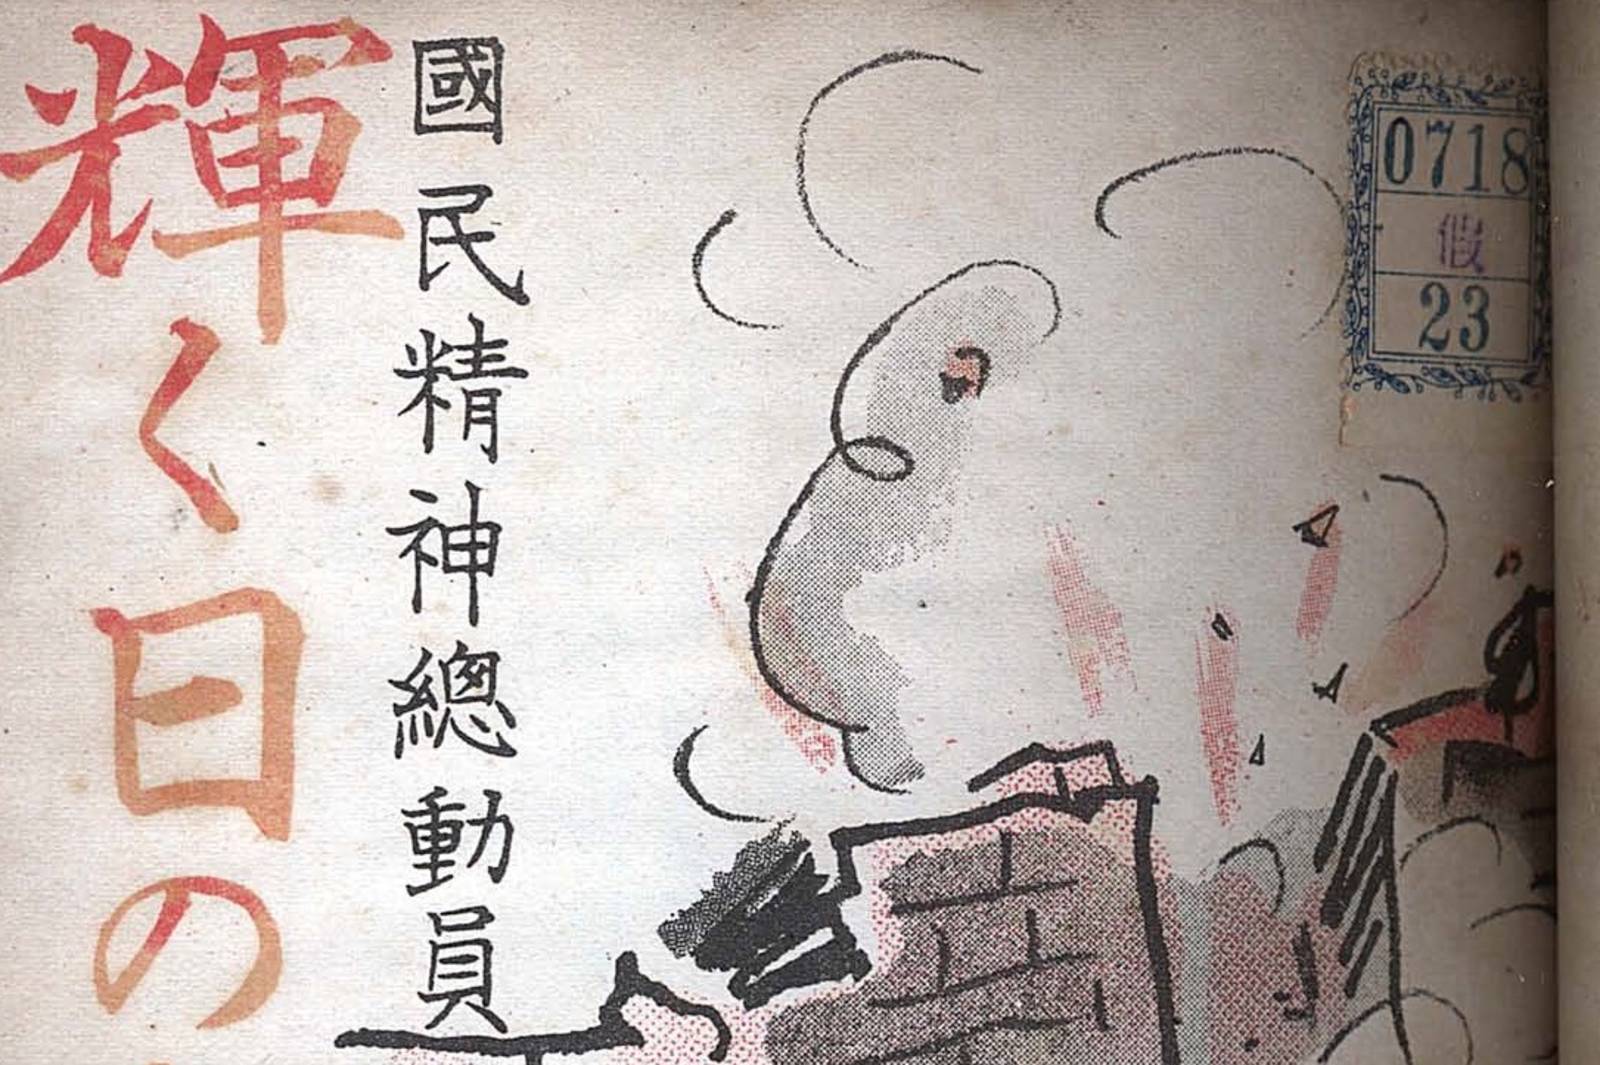 國民精神總動員
輝く日の
0718
假
23